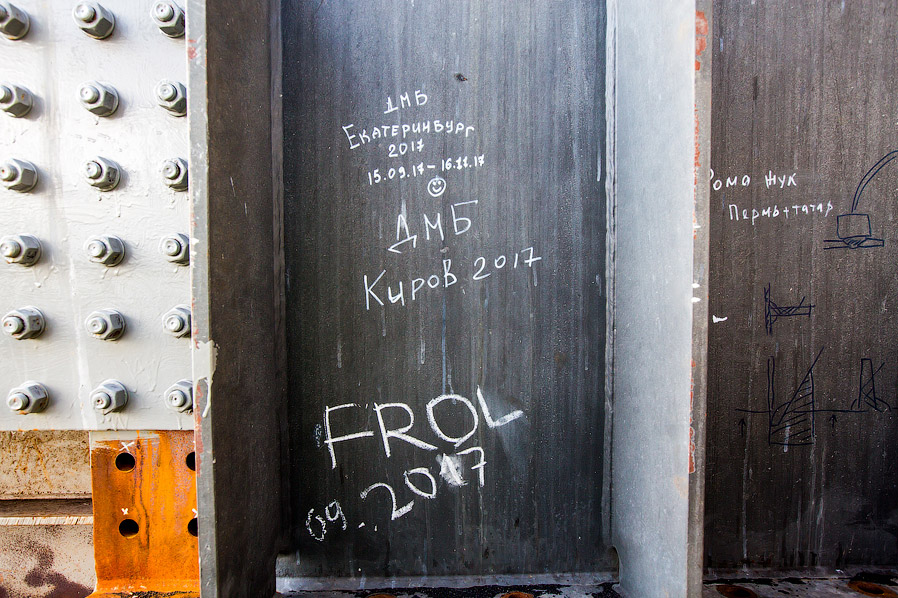 ДМБ
Екатеринбург
2017
15.09.17-16.11.17
ДМБ
Киров 2017
FROL
09.2017
Рома Жук
Пермь+татар